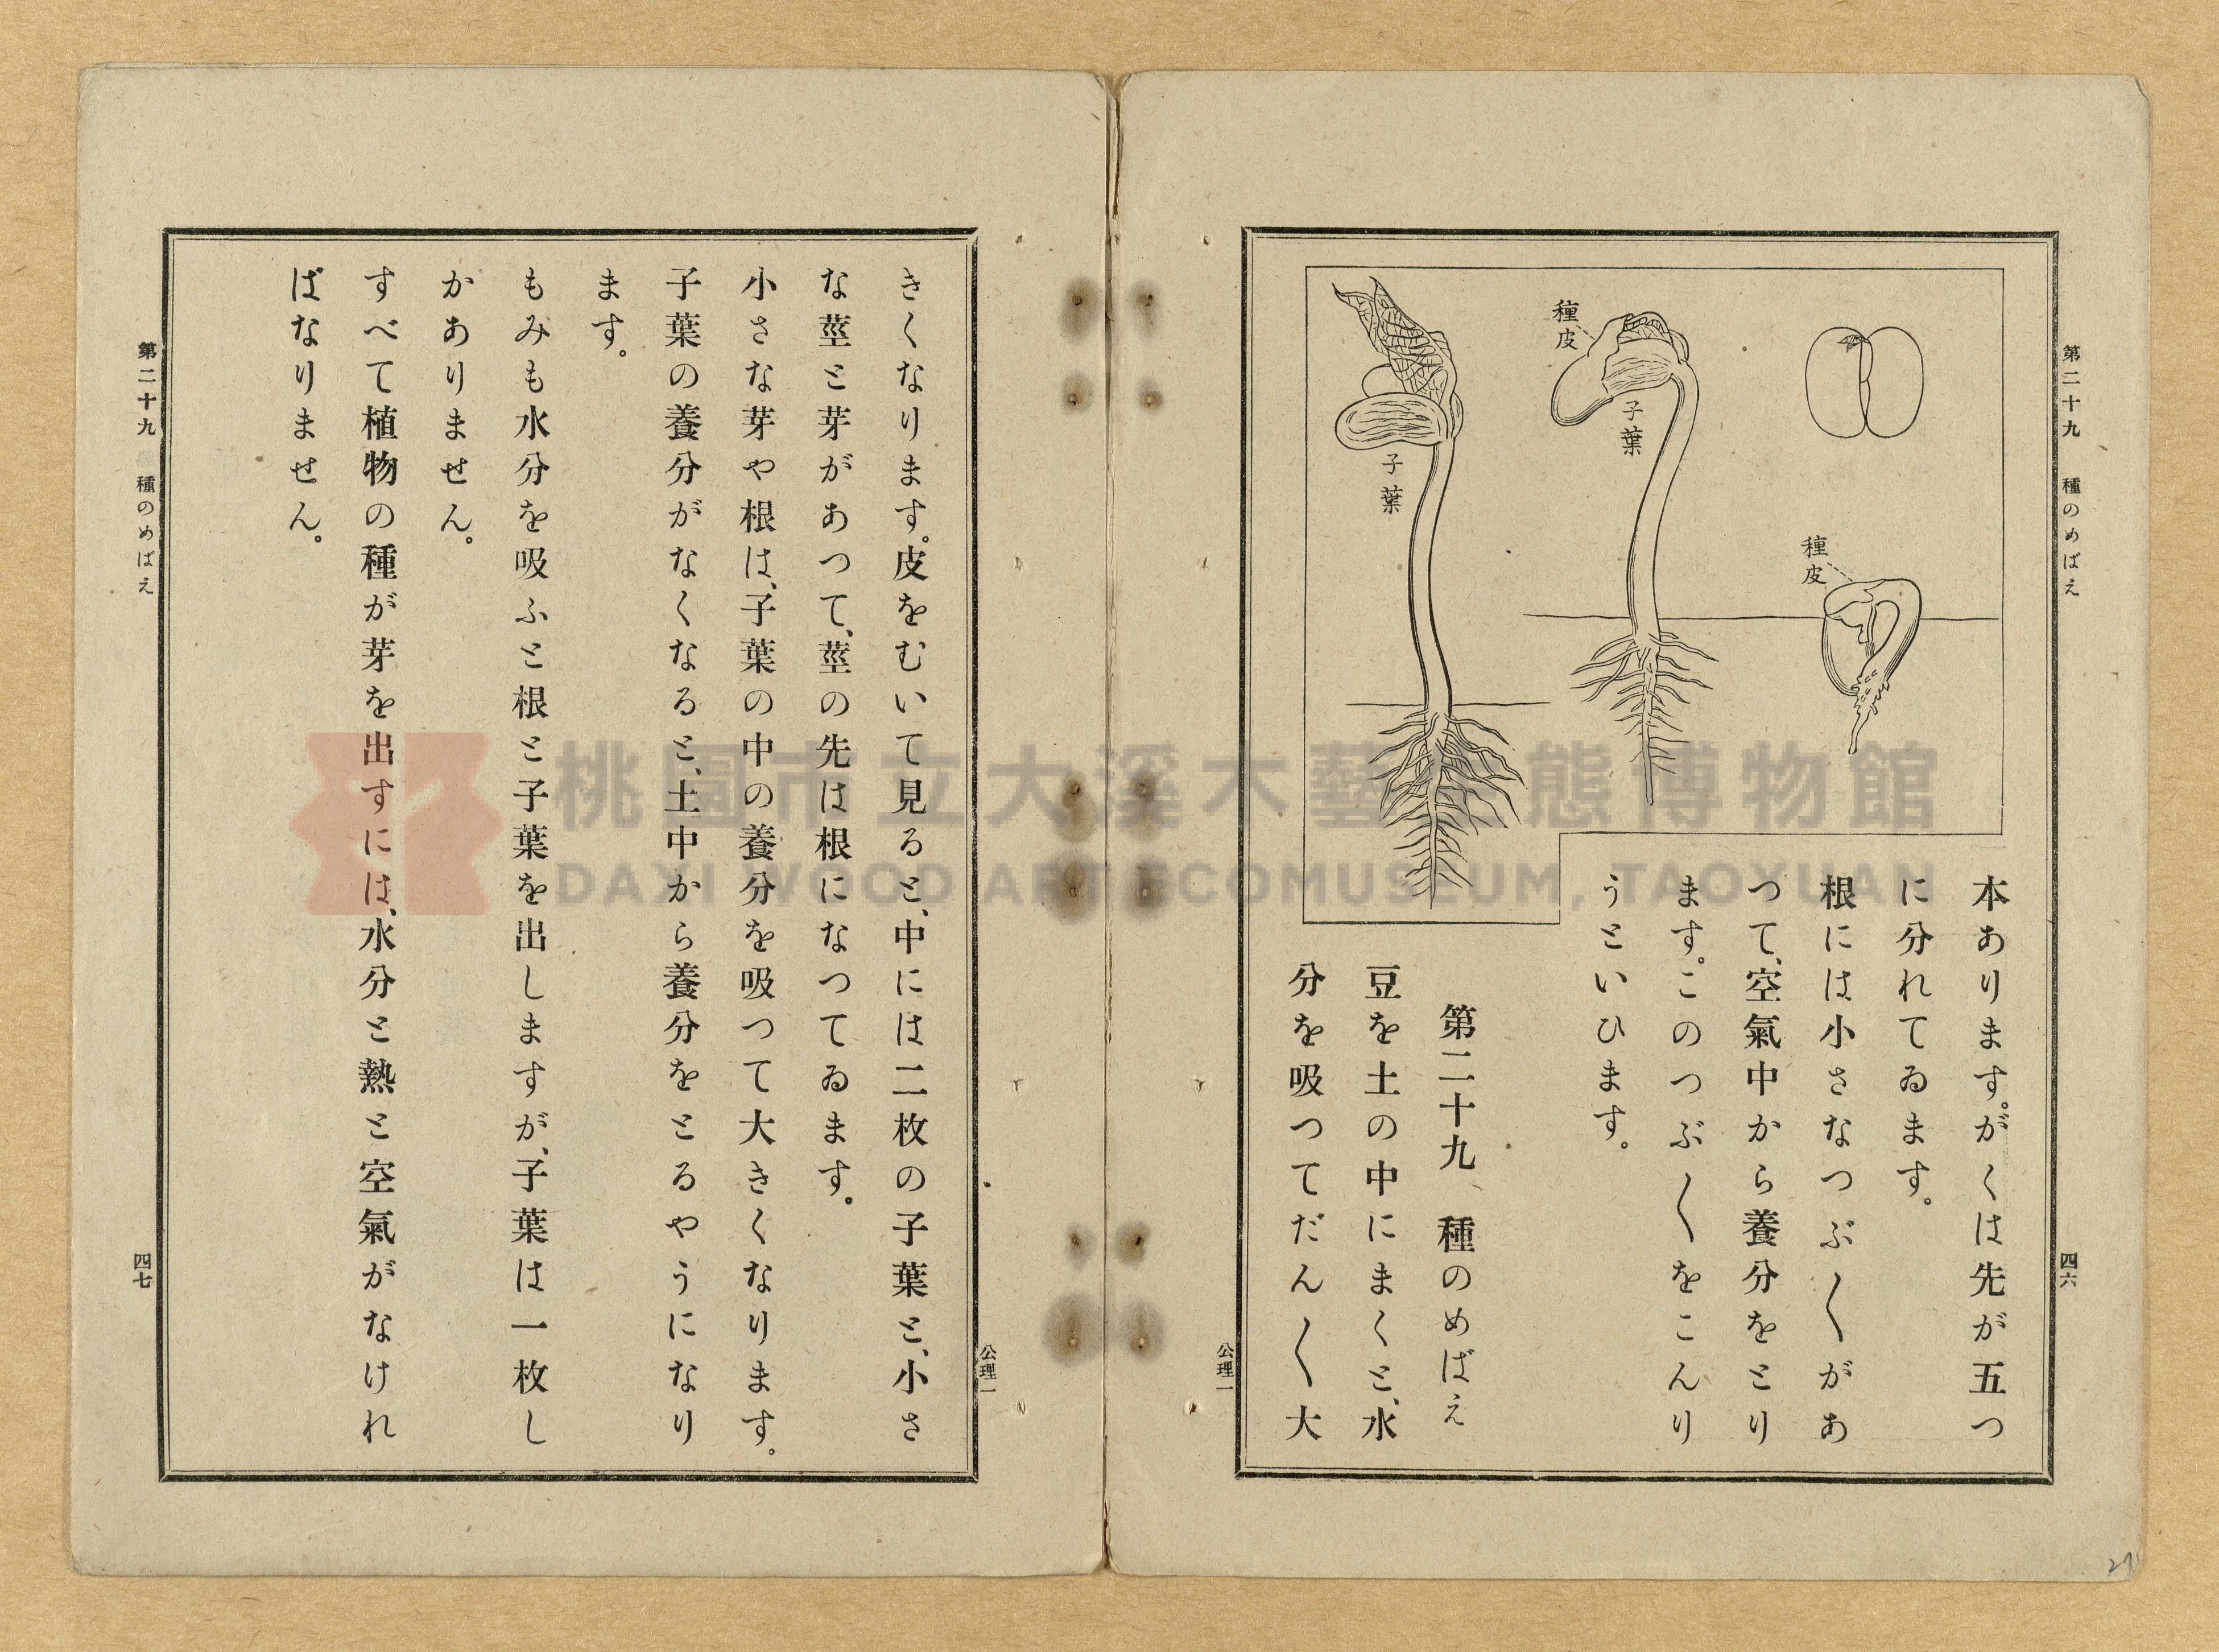 第二十九 種のめばえ
四六
種皮
子葉
子葉
種皮
本あります。がくは先が五つ
に分れてゐます。
根には小さなつぶ〱があ
つて、空氣中から養分をとり
ます。このつぶ〱をこんり
うといひます。
第二十九 種のめばえ
豆を土の中にまくと、水
分を吸つてだん〱大
公理一
公理一
きくなります。皮をむいて見ると、中には二枚の子葉と、小さ
な莖と芽があつて、莖の先は根になつてゐます。
小さな芽や根は、子葉の中の養分を吸つて大きくなります。
子葉の養分がなくなると、土中から養分をとるやうになり
ます。
もみも水分を吸ふと根と子葉を出しますが、子葉は一枚し
かありません。
すべて植物の種が芽を出すには、水分と熱と空氣がなけれ
ばなりません。
第二十九 種のめばえ
四七
桃園市立大溪木藝生態博物館
DAXI WOOD ART ECOMUSEUM, TAOYUAN